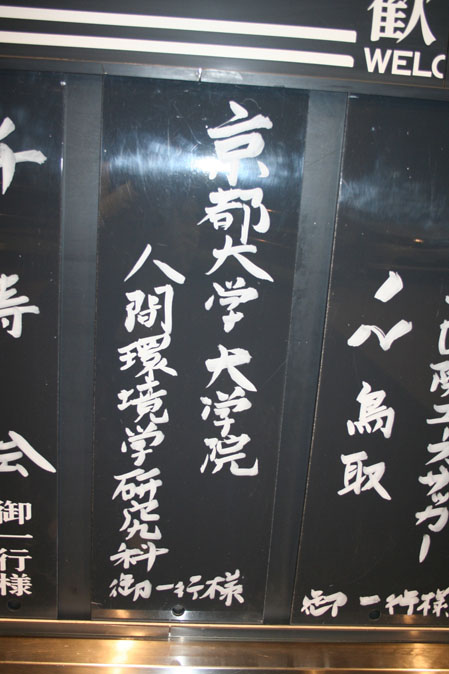 歓
WELC
サッカー
in 鳥取
御一行様
京都大学 大学院
人間環境学研究科
御一行様
千寿会
御一行様